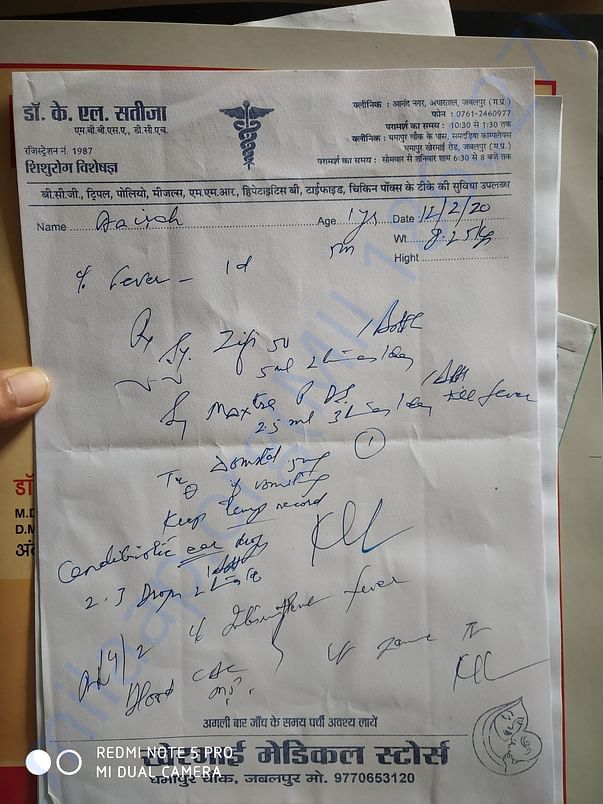 डॉ. के. एल. सतीजा
एम.बी.बी.एस., डी.सी.एच.
रजिस्ट्रेशन नं. 1987
शिशुरोग विशेषज्ञ
क्लीनिक : आनंद नगर, अधारताल, जबलपुर (म.प्र.)
फोन : 0761-2460977
परामर्श का समय : 10:30 से 1:30 तक
क्लीनिक : घमापुर चौक के पास, समदड़िया काम्पलेक्स
घमापुर खेरमाई रोड, जबलपुर (म.प्र.)
परामर्श का समय : सोमवार से शनिवार शाम 6:30 से 8 बजे तक
बी.सी.जी., ट्रिपल, पोलियो, मीजल्स, एम.एम.आर, हिपेटाइटिस बी, टाईफाइड, चिकिन पॉक्स के टीके की सुविधा उपलब्ध
Name Age 1 yr Date 12/2/20
5m Wt. 8.25 kg
Hight
c/o fever - 1d
Rx Sy. 50 1 Bottle
5ml 2 times/day
Sy P DS 1 Bottle
2.5 ml 3 times/day till fever
Domstal 5mg
if vomiting
Keep temp record
Candibiotic ear drop
2-3 Drops 2 times
14/2 fever
Blood CBC
अगली बार जाँच के समय पर्ची अवश्य लायें
खेरमाई मेडिकल स्टोर्स
घमापुर चौक, जबलपुर मो. 9770653120
REDMI NOTE 5 PRO
MI DUAL CAMERA
डॉ
M.D
D.M